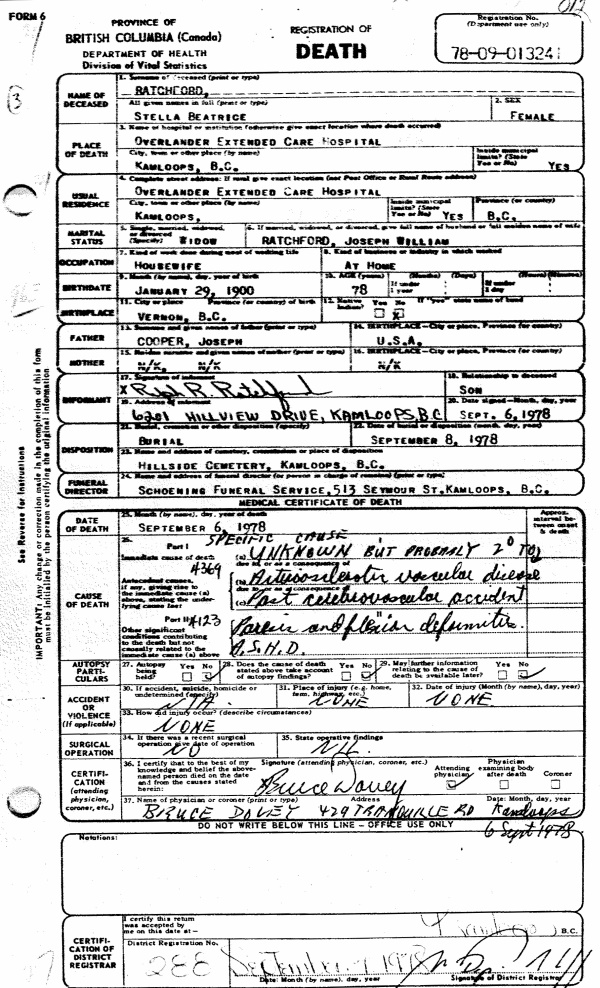 FORM 6
PROVINCE OF
BRITISH COLUMBIA (Canada)
DEPARTMENT OF HEALTH
Division of Vital Statistics
REGISTRATION OF
DEATH
Registration No.
(Department use only)
78-09-013241
3
See Reverse for Instructions
IMPORTANT: Any change or correction made in the completion of this form
must be initialled by the person certifying the original information
NAME OF DECEASED
1. Surname of deceased (print or type)
RATCHFORD,
All given names in full (print or type)
2. SEX
STELLA BEATRICE
FEMALE
PLACE OF DEATH
3. Name of hospital or institution (otherwise give exact location where death occurred)
OVERLANDER EXTENDED CARE HOSPITAL
City, town or other place (by name)
Inside municipal limits? (State Yes or No)
KAMLOOPS, B.C.
YES
USUAL RESIDENCE
4. Complete street address: If rural give exact location (not Post Office or Rural Route address)
OVERLANDER EXTENDED CARE HOSPITAL
City, town or other place (by name)
Inside municipal limits? (State Yes or No)
Province (or country)
KAMLOOPS,
YES
B.C.
MARITAL STATUS
5. Single, married, widowed, or divorced (Specify)
WIDOW
6. If married, widowed, or divorced, give full name of husband or full maiden name of wife
RATCHFORD, JOSEPH WILLIAM
OCCUPATION
7. Kind of work done during most of working life
8. Kind of business or industry in which worked
HOUSEWIFE
AT HOME
BIRTHDATE
9. Month (by name), day, year of birth
10. AGE (years)
(Months) (Days)
(Hours) (Minutes)
JANUARY 29, 1900
78
If under 1 year
If under 1 day
BIRTHPLACE
11. City or place Province (or country) of birth
12. Native Indian?
Yes No
If "yes" state name of band
VERNON, B.C.
X
FATHER
13. Surname and given names of father (print or type)
14. BIRTHPLACE - City or place, Province (or country)
COOPER, JOSEPH
U.S.A.
MOTHER
15. Maiden surname and given names of mother (print or type)
16. BIRTHPLACE - City or place, Province (or country)
N/K.
N/K.
INFORMANT
17. Signature of informant
18. Relationship to deceased
X Ralph R. Ratchford
SON
19. Address of informant
20. Date signed - Month, day, year
6201 HILLVIEW DRIVE, KAMLOOPS, B.C
SEPT. 6, 1978
DISPOSITION
21. Burial, cremation or other disposition (specify)
22. Date of burial or disposition (month, day, year)
BURIAL
SEPTEMBER 8, 1978
23. Name and address of cemetery, crematorium or place of disposition
HILLSIDE CEMETERY, KAMLOOPS, B.C.
FUNERAL DIRECTOR
24. Name and address of funeral director (or person in charge of remains) (print or type)
SCHOENING FUNERAL SERVICE, 513 SEYMOUR ST. KAMLOOPS, B.C.
MEDICAL CERTIFICATE OF DEATH
DATE OF DEATH
25. Month (by name), day, year of death
SEPTEMBER 6, 1978
Approx. interval between onset & death
CAUSE OF DEATH
26.
SPECIFIC CAUSE
Part I
Immediate cause of death
(a) UNKNOWN BUT PROBABLY 2° TO
due to, or as a consequence of
4369
Antecedent causes, if any, giving rise to the immediate cause (a) above, stating the underlying cause last
(b) Arteriosclerotic vascular disease
due to, or as a consequence of
(c) Past cerebrovascular accident
Part II
4123
Other significant conditions contributing to the death but not causally related to the immediate cause (a) above
Paresis and flexion deformities.
A.S.H.D.
AUTOPSY PARTICULARS
27. Autopsy being held?
Yes No
28. Does the cause of death stated above take account of autopsy findings?
Yes No
29. May further information relating to the cause of death be available later?
Yes No
ACCIDENT OR VIOLENCE
(if applicable)
30. If accident, suicide, homicide or undetermined (specify)
N/A
31. Place of injury (e.g. home, farm, highway, etc.)
NONE
32. Date of injury (Month (by name), day, year)
NONE
33. How did injury occur? (describe circumstances)
NONE
SURGICAL OPERATION
34. If there was a recent surgical operation give date of operation
NO
35. State operative findings
CERTIFICATION
(attending physician, coroner, etc.)
36. I certify that to the best of my knowledge and belief the above-named person died on the date and from the causes stated herein:
Signature (attending physician, coroner, etc.)
Bruce Davey
Attending physician
Physician examining body after death
Coroner
37. Name of physician or coroner (print or type)
Address
Date: Month, day, year
BRUCE DAVEY 429 TRANQUILLE RD Kamloops
6 Sept 1978
DO NOT WRITE BELOW THIS LINE - OFFICE USE ONLY
Notations:
CERTIFICATION OF DISTRICT REGISTRAR
I certify this return was accepted by me on this date at -
B.C.
District Registration No.
288
Date: Month (by name), day, year
Signature of District Registrar